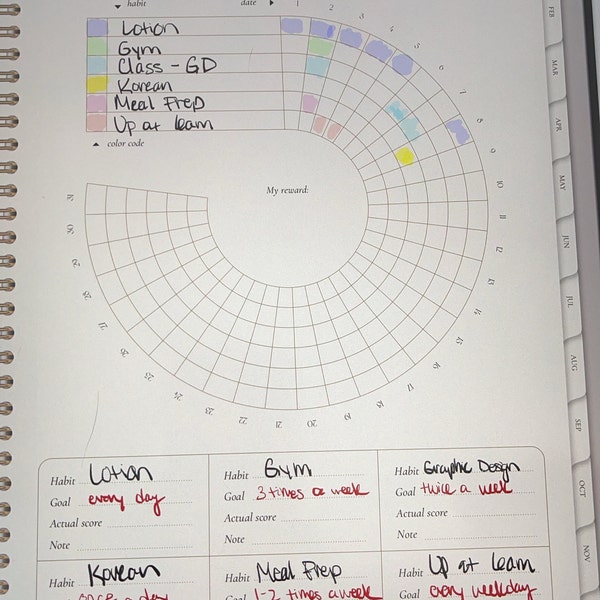 habit date
Lotion
Gym
Class - GD
Korean
Meal Prep
Up at 6am
color code
My reward:
1
2
3
4
5
6
7
8
9
10
11
12
13
14
15
16
17
18
19
20
21
22
23
24
25
26
27
28
29
30
31
FEB
MAR
APR
MAY
JUN
JUL
AUG
SEP
OCT
NOV
Habit Lotion
Goal every day
Actual score
Note
Habit Gym
Goal 3 times a week
Actual score
Note
Habit Graphic Design
Goal twice a week
Actual score
Note
Habit Korean
once a day
Habit Meal Prep
Goal 1-2 times a week
Habit Up at 6am
Goal every weekday